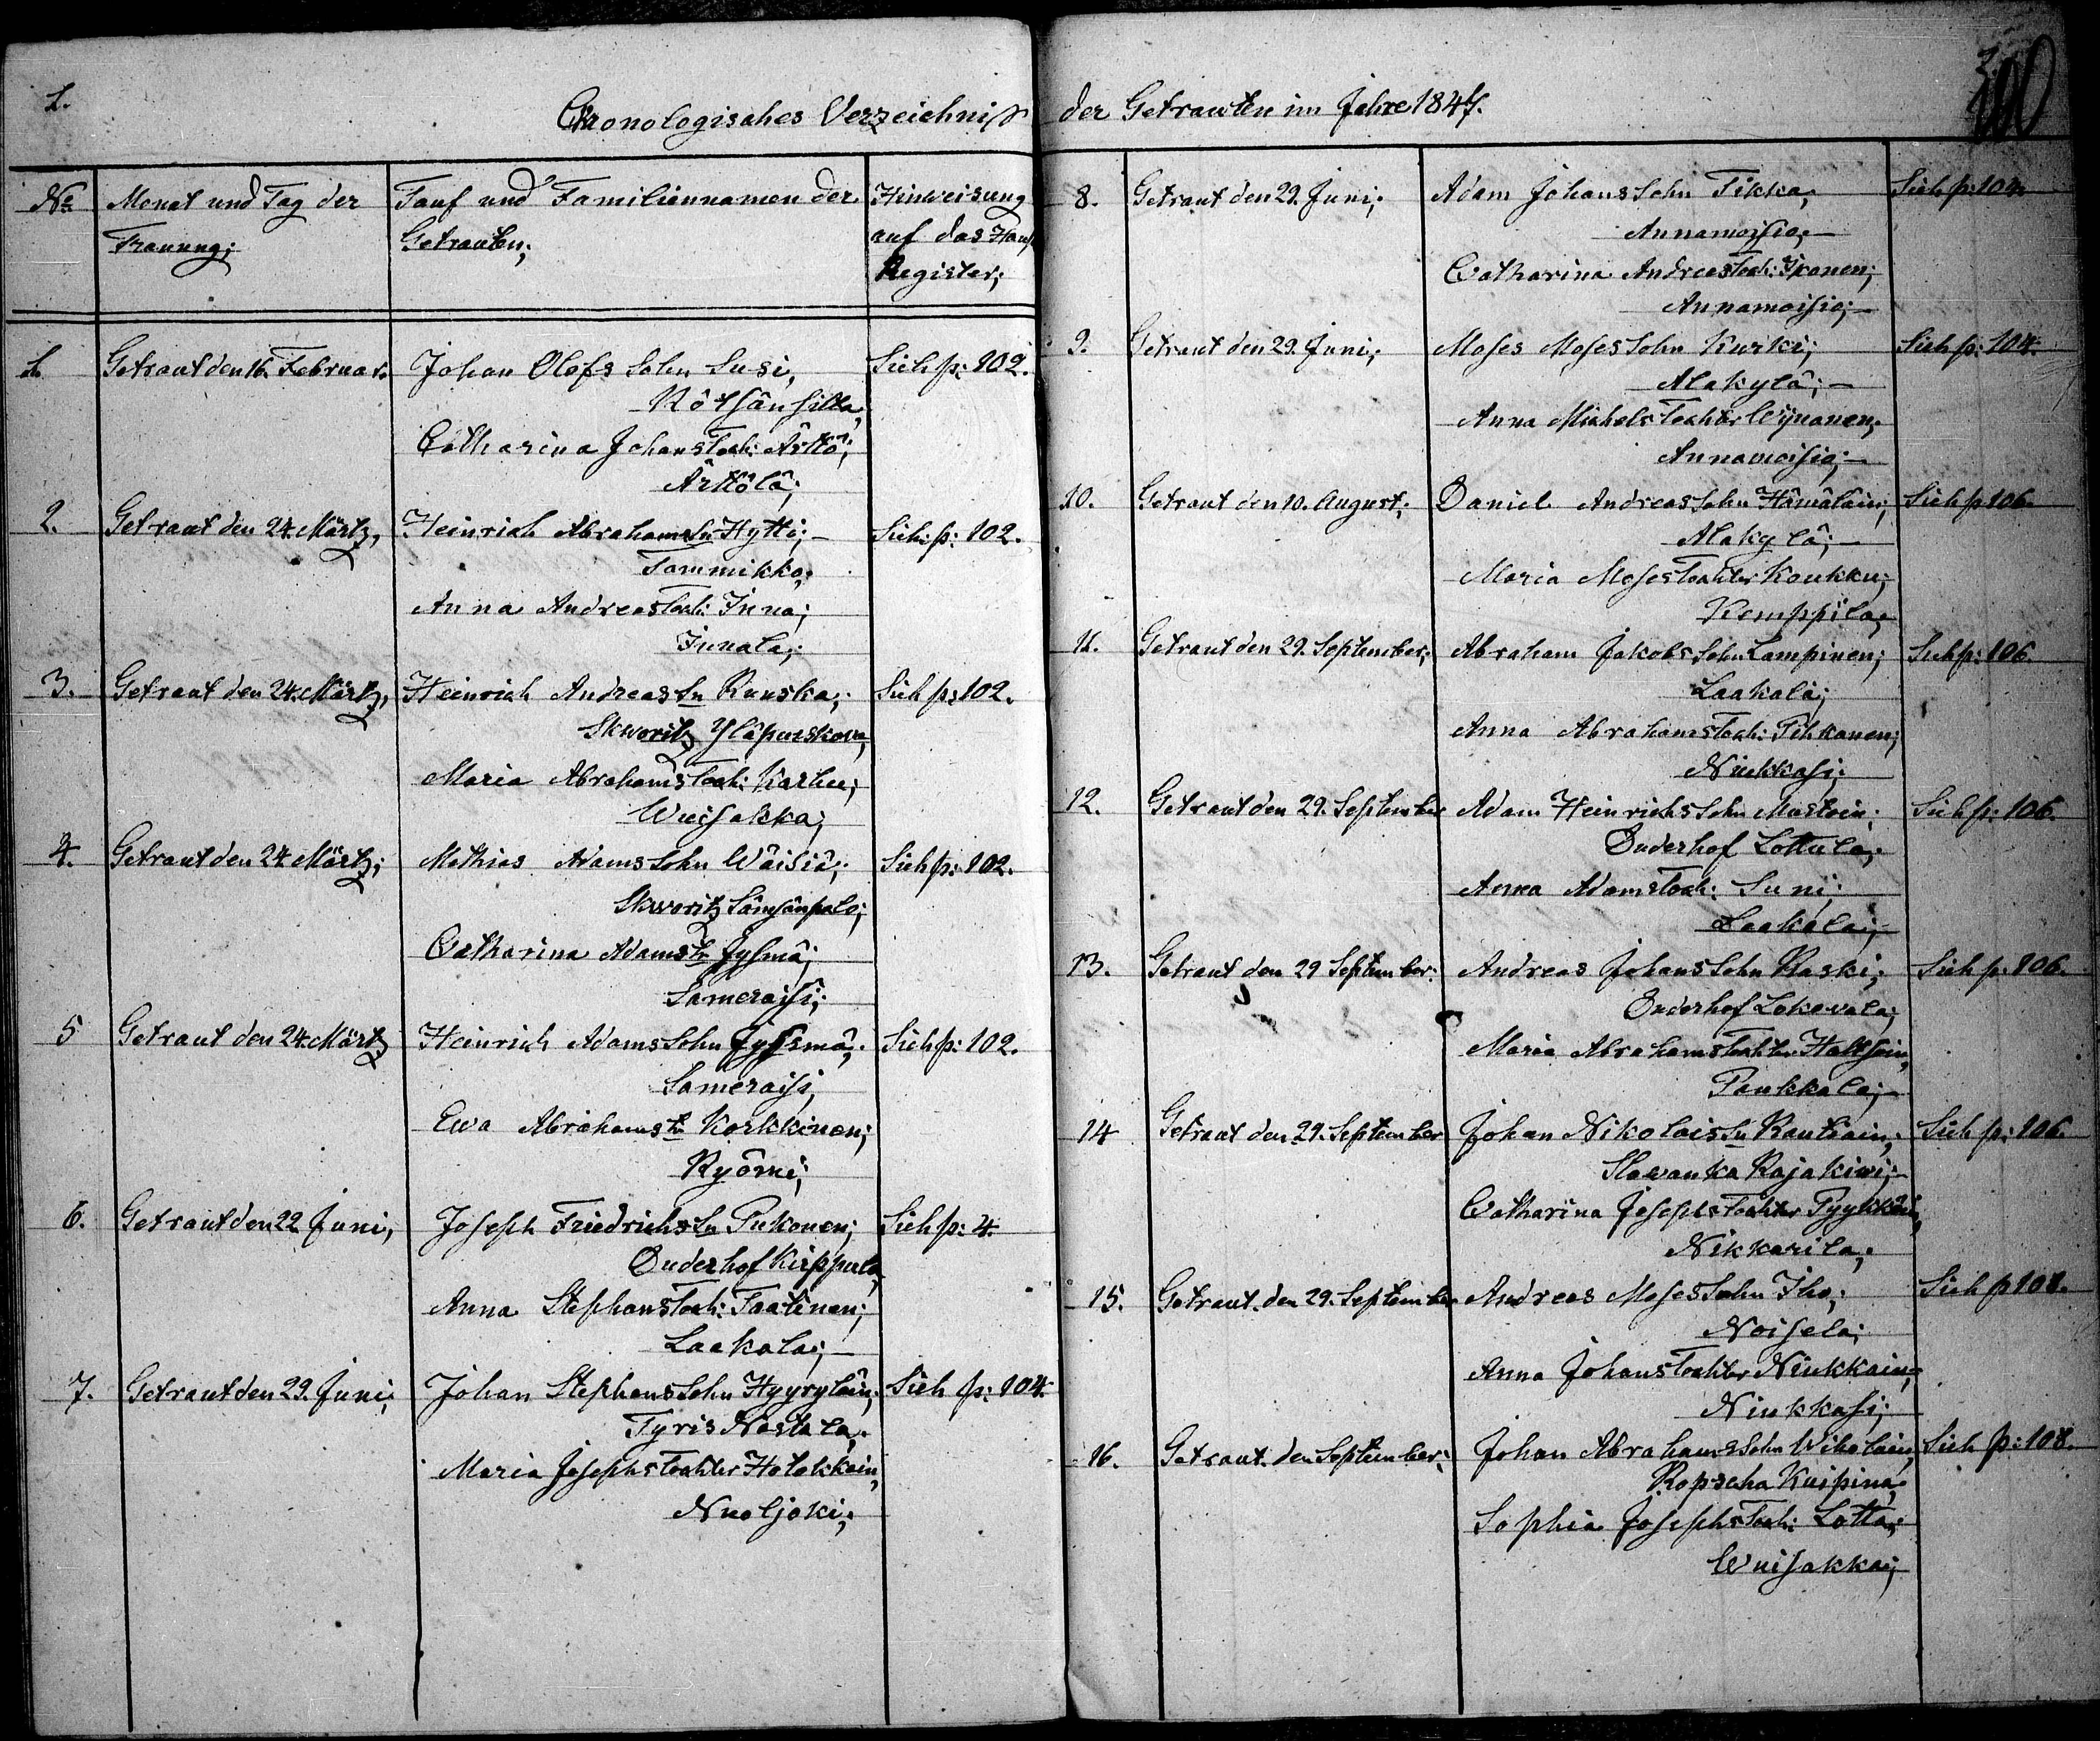 1.
Cronologisches Verzeichniß
№ Monat und Tag der Tauf und Familiennamen der Hinweisung
Trauung; Getrauten; auf das Haus
Register;
1. Getraut den 16. Februar. Johan Olofs Sohn Susi, Sieh p: 102.
Rötsänsilta,
Catharina Johans Toch: Ärttö;
Ärttölä;
2. Getraut den 24. Märtz, Heinrich Abrahams Sn Hytti; Sieh: p: 102.
Tammikko;
Anna Andreas Toch: Inna;
Innala;
3. Getraut den 24. Märtz, Heinrich Andreas Sn Ruuska; Sieh p: 102.
Skworitz Yläpurskowa,
Maria Abrahams Toch: Karhu;
Wuisakka;
4. Getraut den 24. Märtz; Mathias Adams Sohn Wäisiä; Sieh p: 102.
Skworitz Sämsänpalo;
Catharina Adams Tr Jysmä;
Sameraisi;
5 Getraut den 24. Märtz Heinrich Adams Sohn Jysmä; Sieh p: 102.
Sameraisi,
Ewa Abrahams Tr Korkkinen;
Ryömi;
6. Getraut den 22 Juni, Joseph Friedrichs Sn Pukonen; Sieh p: 4.
Duderhof Kirppula,
Anna Stephans Toch: Taatinen;
Laakala;
7. Getraut den 29. Juni; Johan Stephans Sohn Hyyryläin; Sieh p: 104.
Tyris Nastala;
Maria Josephs Tochter Hotokkain,
Nuoljoki;
2.
100
der Getrauten im Jahre 1847.
8. Getraut den 29. Juni; Adam Johans Sohn Tikka; Sieh p: 104.
Annamoisio;
Catharina Andreas Toch: Ikonen;
Annamoisio;
9. Getraut den 29. Juni; Moses Moses Sohn Kurki; Sieh p: 104.
Alakylä;
Anna Michels Tochter Wijnanen;
Annamoisio;
10. Getraut den 10. August; Daniel Andreas Sohn Hämäläin; Sieh p 106.
Alakylä;
Maria Moses Tochter Koukku;
Kemppila;
11. Getraut den 29. September; Abraham Jakobs Sohn Lampinen; Sieh p: 106.
Laakala;
Anna Abrahams Toch: Tihkanen;
Niukkasi;
12. Getraut den 29. September Adam Heinrichs Sohn Mustoin; Sieh p: 106.
Duderhof Lottula;
Anna Adams Toch: Suni;
Laakala;
13. Getraut den 29 September: Andreas Johans Sohn Raski; Sieh p: 106.
Duderhof Lokowala;
Maria Abrahams Tochter Haltsoin,
Paukkala;
14 Getraut den 29. September Johan Nikolais Sn Rautiain; Sieh p: 106.
Slawanka Rajakiwi;
Catharina Josephs Tochter Pyykköin,
Nikkarila;
15. Getraut den 29. September Andreas Moses Sohn Iho; Sieh p 108.
Noisela;
Anna Johans Tochter Niukkain;
Niukkasi;
16. Getraut den September; Johan Abrahams Sohn Wiholain, Sieh p: 108.
Ropscha Kuipina;
Sophia Josephs Toch: Lotta;
Wuisakka;